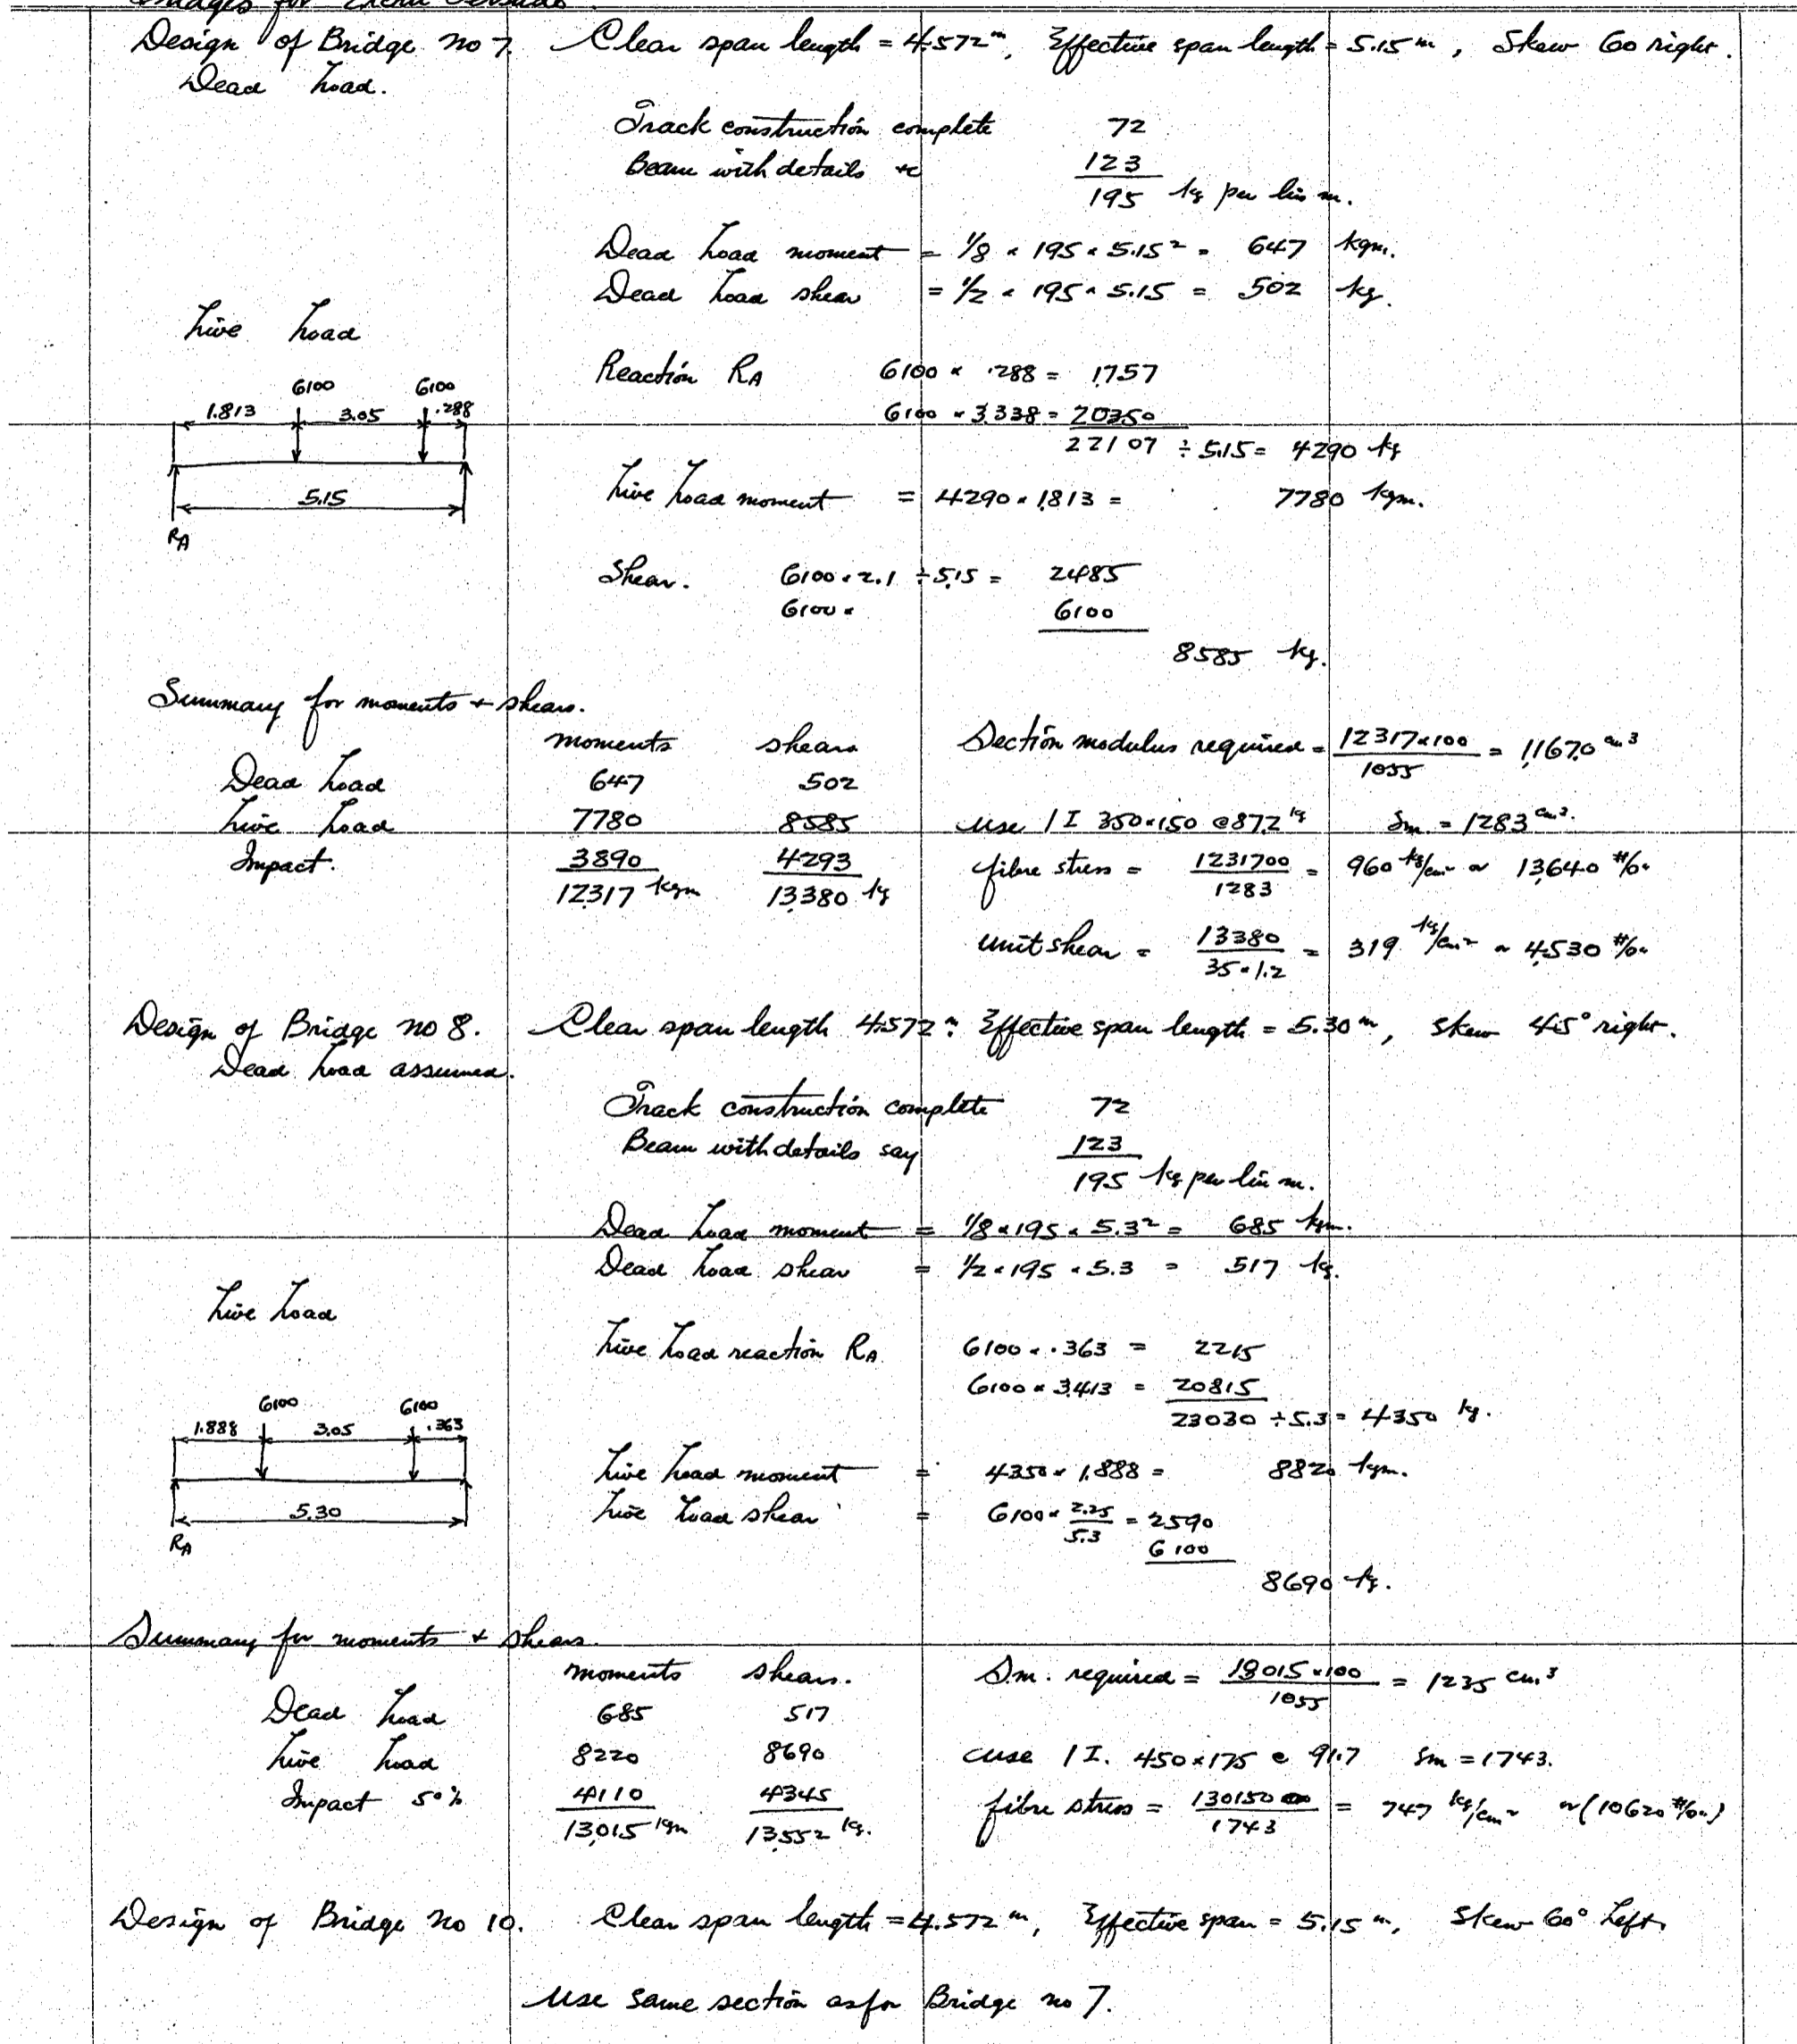 Bridges for
Design of Bridge no 7. Clear span length = 4.572 m, Effective span length = 5.15 m, Skew 60 right.
Dead Load.
Track construction complete 72
Beam with details &c 123
195 kg per lin m.
Dead Load moment = 1/8 × 195 × 5.15² = 647 kgm.
Dead Load shear = 1/2 × 195 × 5.15 = 502 kg.
Live Load
Reaction RA 6100 × .288 = 1757
6100 × 3.338 = 20350
22107 ÷ 5.15 = 4290 kg
6100 6100
1.813 3.05 .288
5.15
RA
Live Load moment = 4290 × 1.813 = 7780 kgm.
Shear. 6100 × 2.1 ÷ 5.15 = 2485
6100 × 6100
8585 kg.
Summary for moments + shears.
moments shears
Dead Load 647 502
Live Load 7780 8585
Impact. 3890 4293
12317 kgm 13,380 kg
Section modulus required = 12317×100 / 1055 = 1,167.0 cm³
use 1 I 350×150 @ 87.2 kg Sm. = 1283 cm³.
fibre stress = 1231700 / 1283 = 960 kg/cm² or 13,640 #/□"
unit shear = 13380 / 35×1.2 = 319 kg/cm² or 4,530 #/□"
Design of Bridge no 8. Clear span length 4.572 m. Effective span length = 5.30 m, Skew 45° right.
Dead Load assumed.
Track construction complete 72
Beam with details say 123
195 kg per lin m.
Dead Load moment = 1/8 × 195 × 5.3² = 685 kgm.
Dead Load shear = 1/2 × 195 × 5.3 = 517 kg.
Live Load
Live Load reaction RA 6100 × .363 = 2215
6100 × 3.413 = 20815
23030 ÷ 5.3 = 4350 kg.
6100 6100
1.888 3.05 .363
5.30
RA
Live Load moment = 4350 × 1.888 = 8820 kgm.
Live Load shear = 6100 × 2.25 / 5.3 = 2590
6100
8690 kg.
Summary for moments + shears.
moments shears.
Dead Load 685 517
Live Load 8220 8690
Impact 50% 4110 4345
13,015 kgm 13,552 kg.
S.m. required = 13015×100 / 1055 = 1235 cm³
use 1 I. 450×175 @ 91.7 Sm = 1743.
fibre stress = 1301500 / 1743 = 747 kg/cm² or (10620 #/□")
Design of Bridge no 10. Clear span length = 4.572 m, Effective span = 5.15 m, Skew 60° Left.
Use same section as for Bridge no 7.